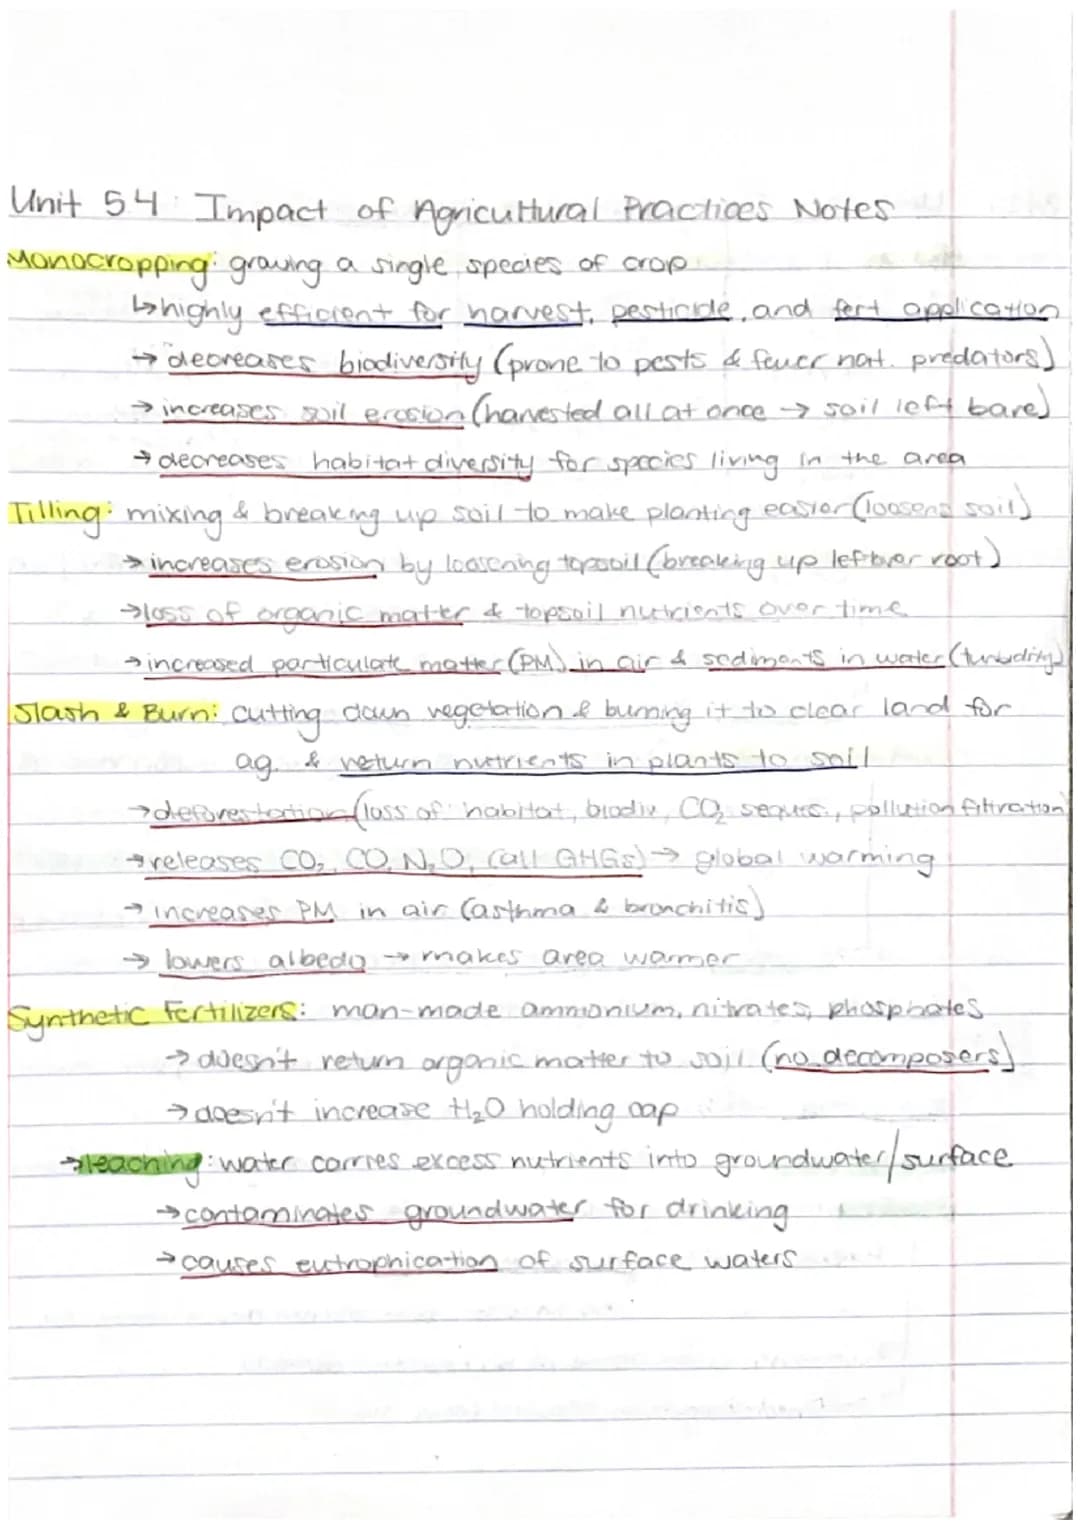 Unit 5.4: Impact of Agricultural Practices Notes
Monocropping: growing a single species of crop
↳ highly efficient for harvest, pesticide, and fert application
→ decreases biodiversity (prone to pests & fewer nat. predators)
→ increases soil erosion (harvested all at once → soil left bare)
→ decreases habitat diversity for species living in the area
Tilling: mixing & breaking up soil to make planting easier (loosens soil)
→ increases erosion by loosening topsoil (breaking up leftover root)
→ loss of organic matter & topsoil nutrients over time
→ increased particulate matter (PM) in air & sediments in water (turbidity)
Slash & Burn: cutting down vegetation & burning it to clear land for
ag. & return nutrients in plants to soil
→ deforestation (loss of habitat, biodiv, CO₂ seques., pollution filtration)
→ releases CO₂, CO, N₂O, (all GHGs) → global warming
→ increases PM in air (asthma & bronchitis)
→ lowers albedo → makes area warmer
Synthetic Fertilizers: man-made ammonium, nitrates, phosphates
→ doesn't return organic matter to soil (no decomposers)
→ doesn't increase H₂O holding cap
→ leaching: water carries excess nutrients into groundwater/surface
→ contaminates groundwater for drinking
→ causes eutrophication of surface waters